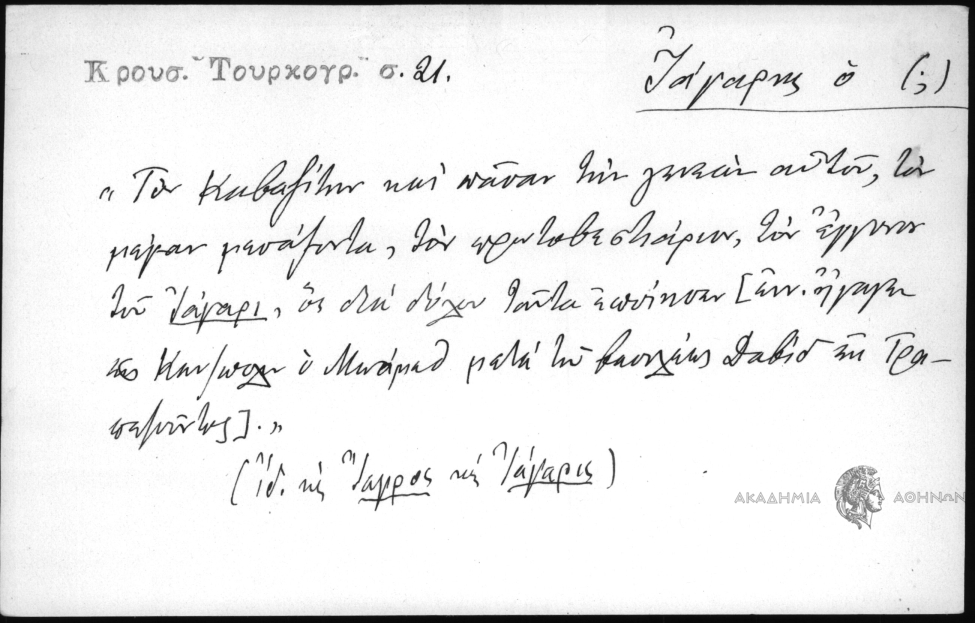 Κρουσ. "Τουρκογρ." σ. 21.
Ἰάγαρης ὁ (;)
„ Τὸν Καβαζίτην καὶ πᾶσαν τὴν γενεὰν αὐτοῦ, τὸν
μέγαν μεσάζοντα, τὸν πρωτοβεστιάριον, τὸν ἔγγονον
τοῦ Ἰάγαρι, ὃς διὰ δόλου ταῦτα ἐποίησεν [ἐνν. ἤγαγεν
εἰς Κων/πολιν ὁ Μωάμεθ μετὰ τοῦ βασιλέως Δαβὶδ ἐκ Τρα-
πεζοῦντος]. „
(ἰδ. κὲ Ἴαγρος κὲ Ἰάγαρις)
ΑΚΑΔΗΜΙΑ ΑΘΗΝΩΝ